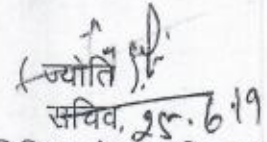 (ज्योति)
सचिव, 25.6.19